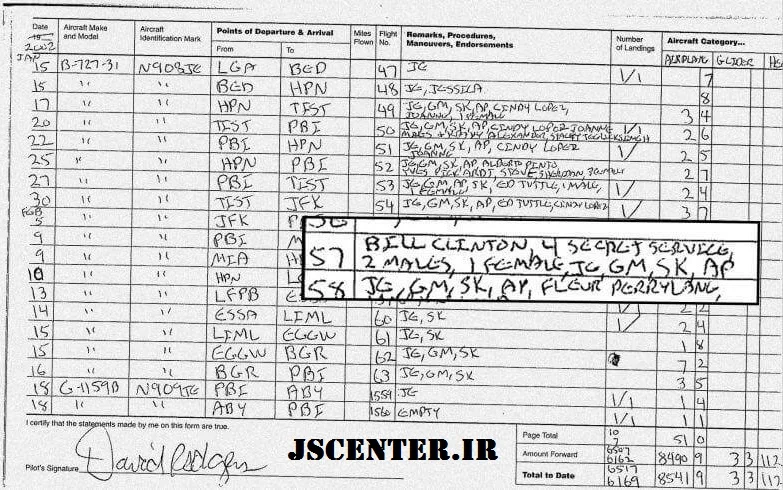 Date Aircraft Make and Model Aircraft Identification Mark Points of Departure & Arrival Miles Flown Flight No. Remarks, Procedures, Maneuvers, Endorsements Number of Landings Aircraft Category...
2002 From To AIRPLANE GLIDER
JAN 15 B-727-31 N908JE LGA BED 47 JE 1/1 7
15 " " BED HPN 48 JE, JESSICA 8
17 " " HPN TIST 49 JE, GM, SK, AP, CINDY LOPEZ, 3 4
JOANNE, 1 FEMALE
20 " " TIST PBI 50 JE, GM, SK, AP, CINDY LOPEZ JOANNE 1/1 2 6
22 " " PBI HPN 51 JE, GM, SK, AP, CINDY LOPEZ 1/1 2 5
JOANNE
25 " " HPN PBI 52 JE, GM, SK, AP, ALBERTO PINTO 2 7
27 " " PBI TIST 53 JE, GM, AP, SK, ED TUTTLE, 1 MALE, 1/1 2 4
1 FEMALE
30 " " TIST JFK 54 JE, GM, SK, AP, ED TUTTLE, CINDY LOPEZ 1/1 3 7
FEB 5 " " JFK P
9 " " PBI M
9 " " MIA H
57 BILL CLINTON, 4 SECRET SERVICE,
2 MALES, 1 FEMALE, JE, GM, SK, AP
10 " " HPN L
58 JE, GM, SK, AP, FLEUR PERRY LANG,
13 " " LFPB ESSA 2 2
14 " " ESSA LIML 60 JE, SK 1/ 2 4
15 " " LIML EGGW 61 JE, SK 1 8
15 " " EGGW BGR 62 JE, GM, SK 7 2
16 " " BGR PBI 63 JE, GM, SK 3 5
18 G-1159B N909JE PBI ABY 1559 JE 1/1 1 4
18 " " ABY PBI 1560 EMPTY 1/1 1 1
I certify that the statements made by me on this form are true.
Pilot's Signature David Rodgers
JSCENTER.IR
Page Total 10 7 51 0
Amount Forward 6507 6162 8490 9 3 3 112
Total to Date 6517 6169 8541 9 3 3 112